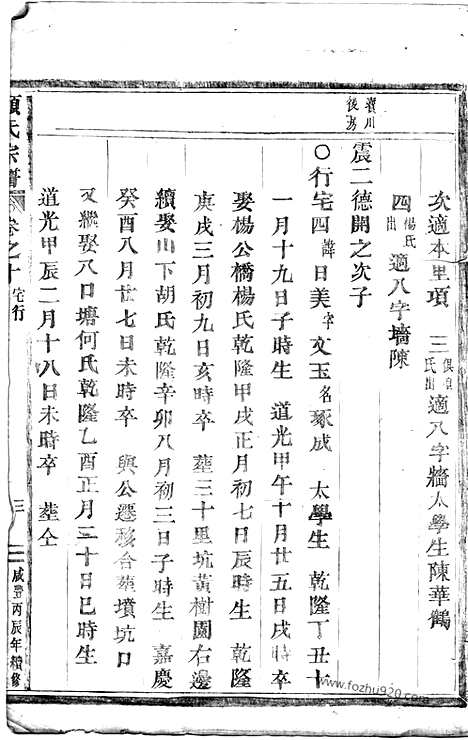 次適本里項 三俱項氏出適八字牆太學生陳華鶴
四楊氏出適八字墻陳
後房
震二德開之次子
○行宅四諱日美字文玉名琢成 太學生 乾隆丁丑十
一月十九日子時生 道光甲午十月廿五日戌時卒
娶楊公橋楊氏乾隆甲戌正月初七日辰時生 乾隆
庚戌三月初九日亥時卒 葬三十里坑黃樹園右邊
續娶山下胡氏乾隆辛卯八月初三日子時生 嘉慶
癸酉八月廿七日未時卒 與公遷移合葬墳坑口
又繼娶八口塘何氏乾隆乙酉正月三十日巳時生
道光甲辰二月十八日未時卒 葬仝
項氏宗譜 卷之十 宅行 咸豐丙辰年續修
www.fozhu920.com